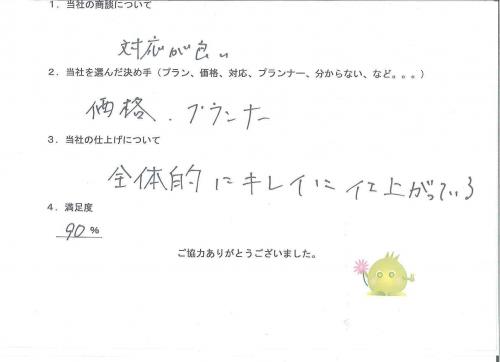 1．当社の商談について
対応が良い
2．当社を選んだ決め手（プラン、価格、対応、プランナー、分からない、など。。。）
価格、プランナー
3．当社の仕上げについて
全体的にキレイに仕上がっている
4．満足度
90 %
ご協力ありがとうございました。